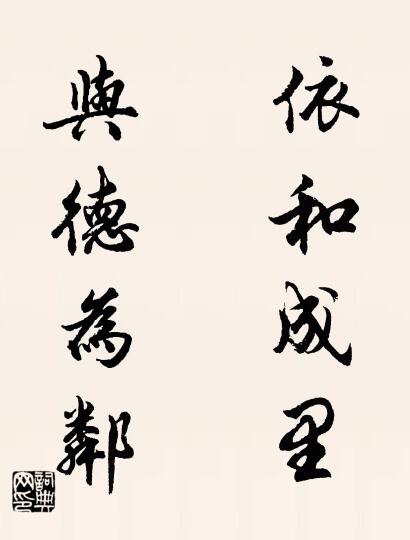 依和成里
與德為鄰
詞典網印